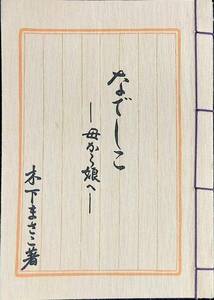 なでしこ
―母から娘へ―
木下まさこ著